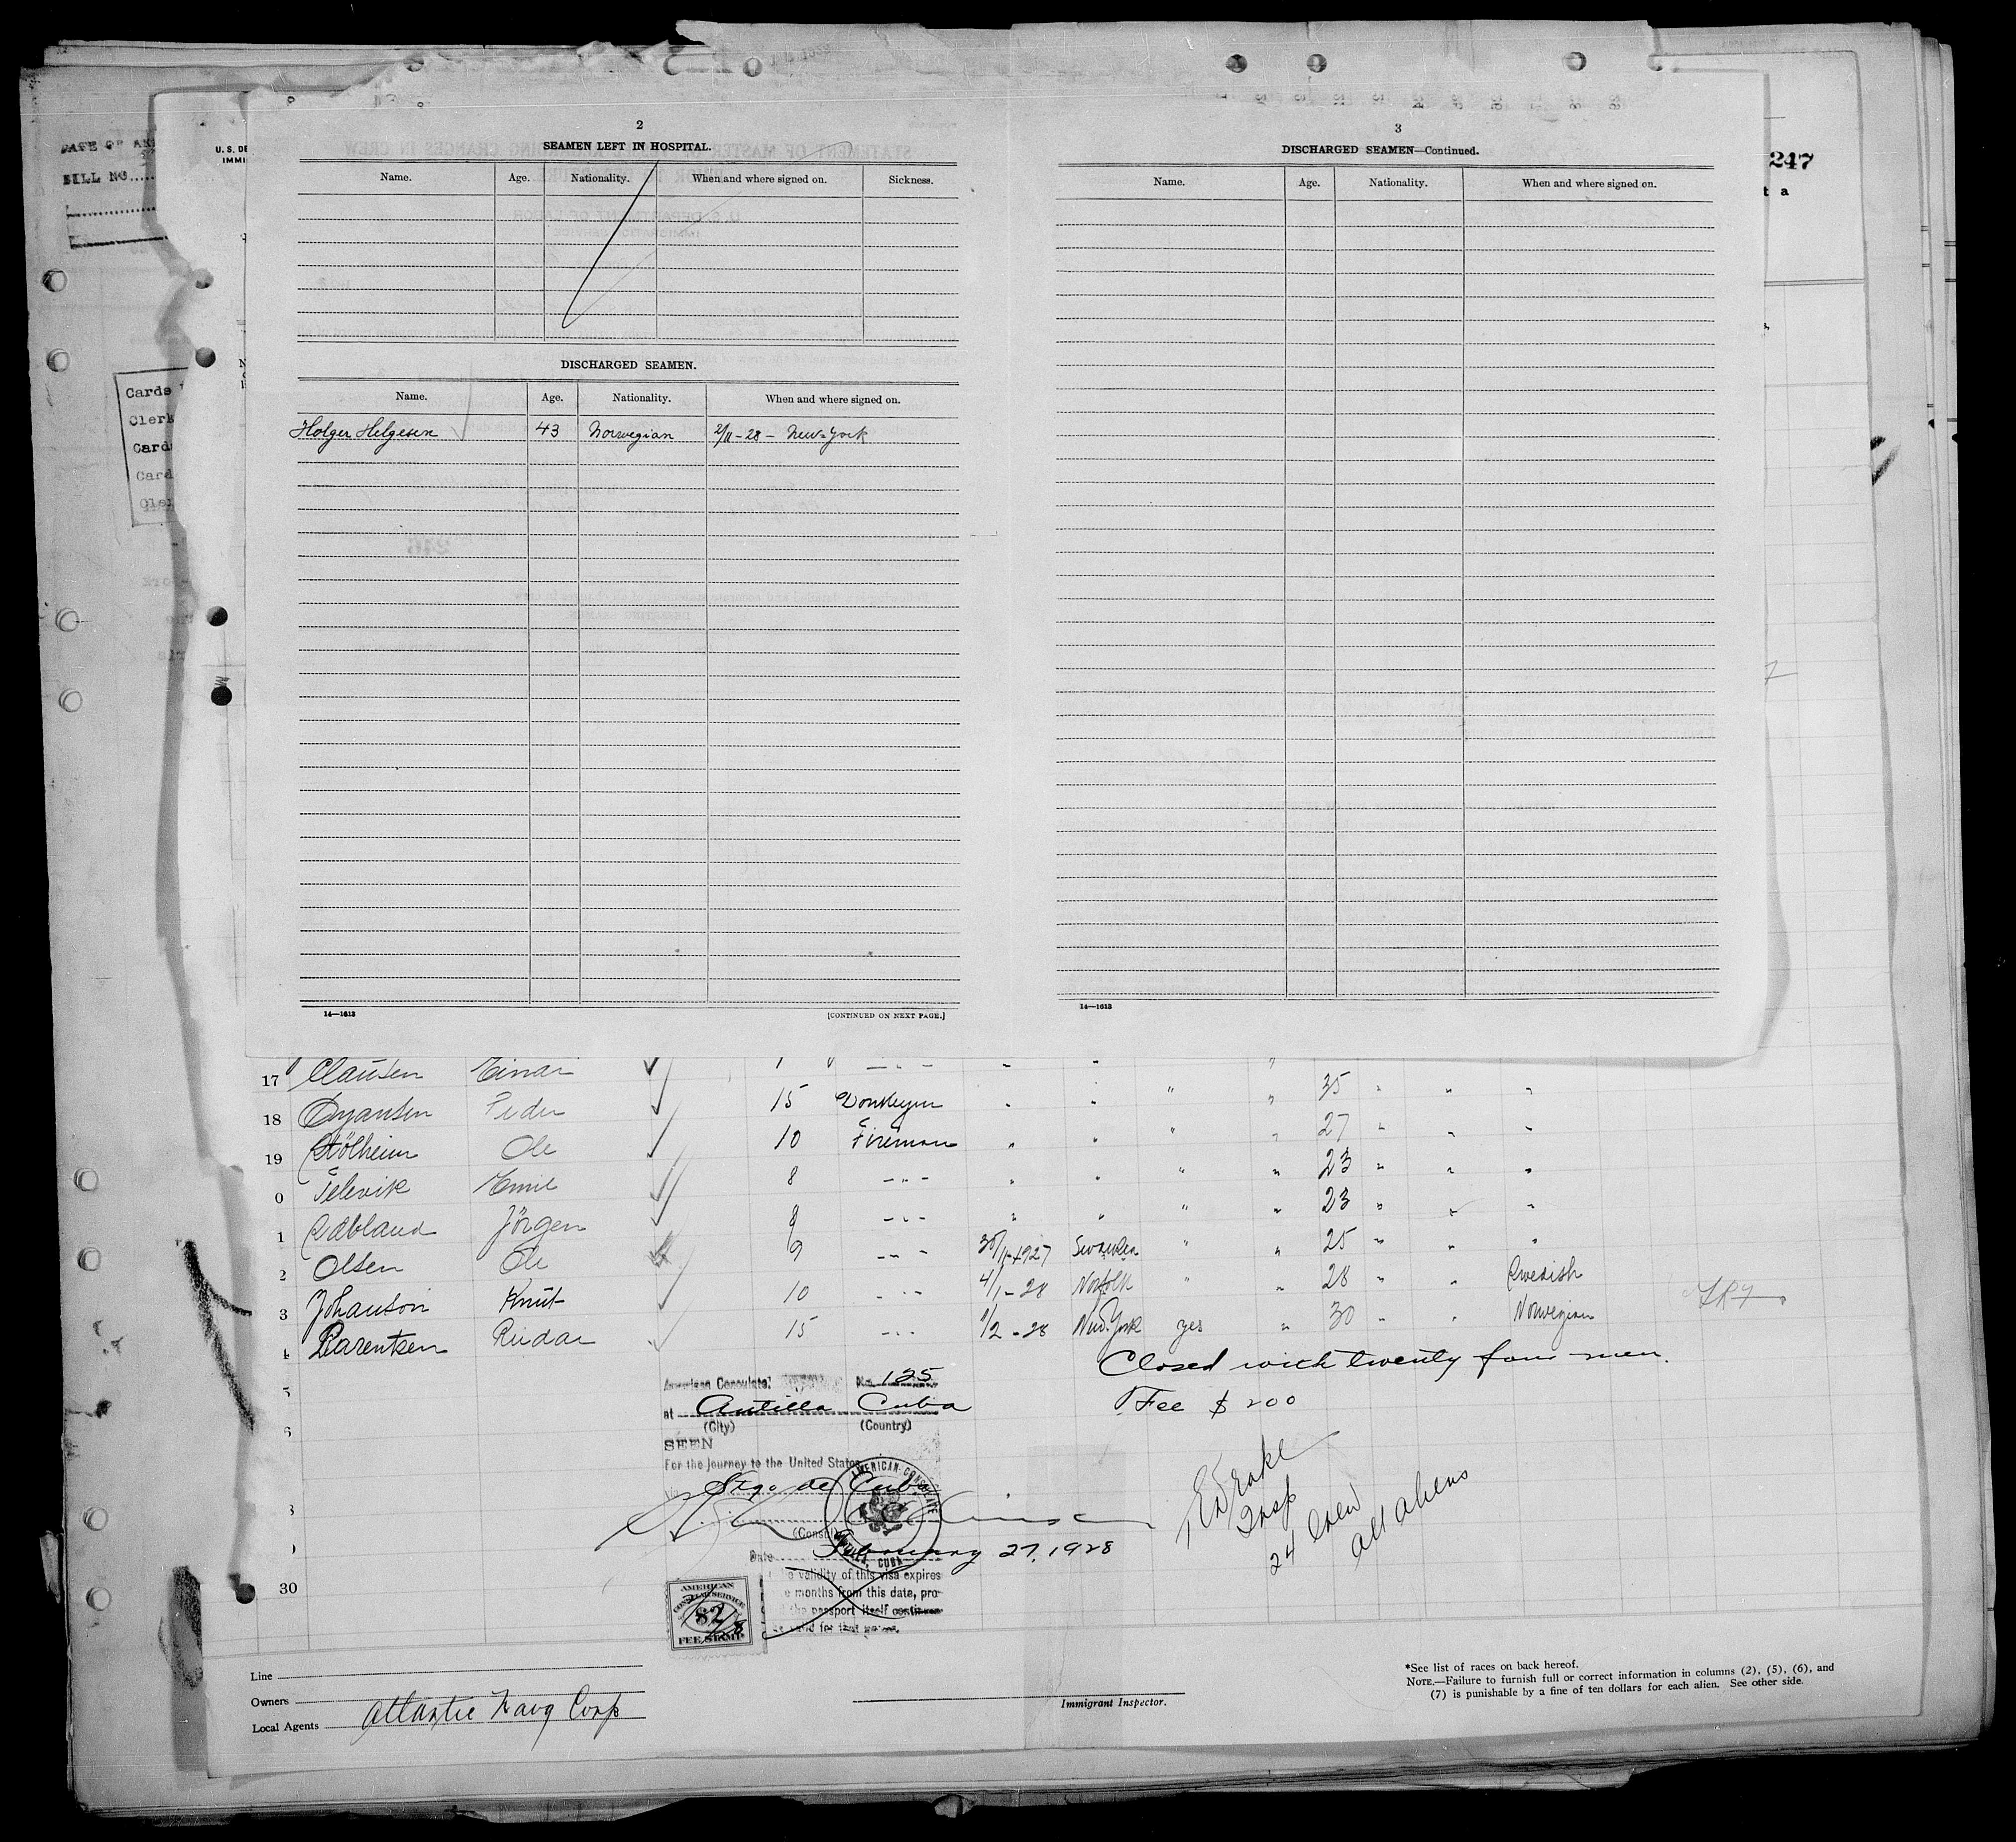 DATE OF
BILL NO.....
U. S. DE
IMMI
247
t a
Cards
Clerk
Card
Card
Cler
2
SEAMEN LEFT IN HOSPITAL.
Name. Age. Nationality. When and where signed on. Sickness.
DISCHARGED SEAMEN.
Name. Age. Nationality. When and where signed on.
Holger Helgesen 43 Norwegian 2/11-28 - New-York
14—1613 [CONTINUED ON NEXT PAGE.]
3
DISCHARGED SEAMEN—Continued.
Name. Age. Nationality. When and where signed on.
14—1613
17 Clausen Einar - - - " " "
18 Peder 15 Donkeym " " " " 35 " " "
19 Stölheim Ole 10 Fireman " " " " 27 " " "
0 Televik Emil 8 - - - " " " " 23 " " "
1 Jörgen 8 - - - " " " " 23 " " "
2 Olsen Ole 9 - - - 30/11-1927 " " 25 " " "
3 Johanson Knut 10 - - - 4/1-28 Norfolk " " 28 " " Swedish
4 Reidar 15 - - - 1/2-28 New-York yes " 30 " " Norwegian
5
6
30
Closed with twenty four men.
Fee $ 200
American Consulate No. 125
at Antilla Cuba
(City) (Country)
SEEN
For the journey to the United States
via Stgo de Cuba
(Consul)
AMERICAN CONSULATE
CUBA
Date February 27, 1928
validity of this visa expires
months from this date, pro-
the passport itself continues
valid for that
AMERICAN
CONSULAR SERVICE
$2
FEE STAMP
Drake
Insp
24 Crew
all aliens
Line
Owners
Local Agents Atlantic Navg Corp
Immigrant Inspector.
*See list of races on back hereof.
NOTE.—Failure to furnish full or correct information in columns (2), (5), (6), and
(7) is punishable by a fine of ten dollars for each alien. See other side.